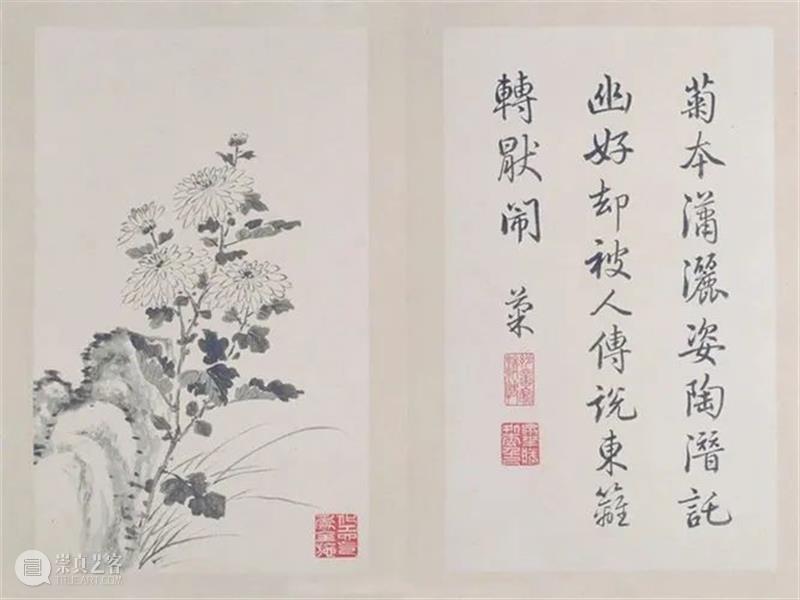 菊本瀟灑姿陶潛託
幽好却被人傳說東籬
轉厭閙
菊
崇真艺客